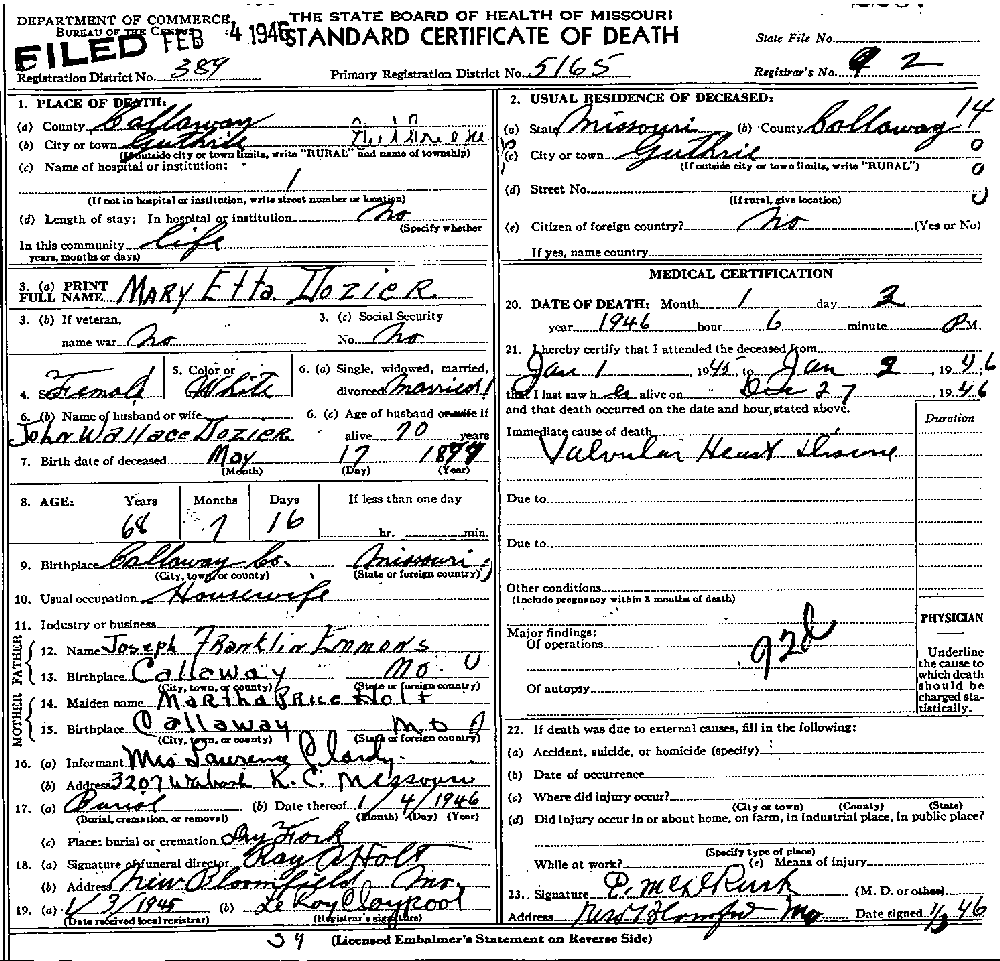 DEPARTMENT OF COMMERCE
BUREAU OF THE CENSUS
THE STATE BOARD OF HEALTH OF MISSOURI
STANDARD CERTIFICATE OF DEATH
FILED FEB 4 1946
State File No.
Registration District No. 389
Primary Registration District No. 5165
Registrar's No. 92
1. PLACE OF DEATH:
(a) County Callaway
(b) City or town Guthrie
(If outside city or town limits, write "RURAL" and name of township)
(c) Name of hospital or institution:
1
(If not in hospital or institution, write street number or location)
(d) Length of stay: In hospital or institution No
(Specify whether
In this community life
years, months or days)
2. USUAL RESIDENCE OF DECEASED:
(a) State Missouri (b) County Callaway 14
(c) City or town Guthrie 0
(If outside city or town limits, write "RURAL") 0
(d) Street No.
(If rural, give location)
(e) Citizen of foreign country? No (Yes or No)
If yes, name country
3. (a) PRINT FULL NAME MARY Etta DOZIER
3. (b) If veteran, name war No
3. (c) Social Security No. No
4. Sex Female
5. Color or White
6. (a) Single, widowed, married, divorced Married 1
6. (b) Name of husband or wife John Wallace Dozier
6. (c) Age of husband or wife if alive 70 years
7. Birth date of deceased May 17
(Month) (Day) (Year)
8. AGE: Years Months Days If less than one day
68 7 16 hr. min.
9. Birthplace Callaway Co. Missouri
(City, town, or county) (State or foreign country)
10. Usual occupation Housewife
11. Industry or business
FATHER
12. Name Joseph Franklin Emmons
13. Birthplace Callaway Mo. 0
(City, town, or county) (State or foreign country)
MOTHER
14. Maiden name Martha Price Holt
15. Birthplace Callaway Mo
(City, town, or county) (State or foreign country)
16. (a) Informant Mrs Clardy
(b) Address 3207 Wabash K.C. Missouri
17. (a) Burial (b) Date thereof 1/4/1946
(Burial, cremation, or removal) (Month) (Day) (Year)
(c) Place: burial or cremation Dry Fork
18. (a) Signature of funeral director Ray A Holt
(b) Address New Bloomfield Mo.
19. (a) 1/3/1945 (b) LeRoy Claypool
(Date received local registrar) (Registrar's signature)
MEDICAL CERTIFICATION
20. DATE OF DEATH: Month 1 day 2
year 1946 hour 6 minute P.M.
21. I hereby certify that I attended the deceased from
Jan 1 1945, to Jan 2 1946
that I last saw her alive on Dec 27 1946
and that death occurred on the date and hour stated above.
Duration
Immediate cause of death
Valvular Heart Disease
Due to
Due to
Other conditions
(Include pregnancy within 3 months of death)
PHYSICIAN
Major findings:
Of operations 92d
Of autopsy
Underline the cause to which death should be charged statistically.
22. If death was due to external causes, fill in the following:
(a) Accident, suicide, or homicide (specify)
(b) Date of occurrence
(c) Where did injury occur?
(City or town) (County) (State)
(d) Did injury occur in or about home, on farm, in industrial place, in public place?
(Specify type of place)
While at work? (e) Means of injury
23. Signature (M. D. or other)
Address New Bloomfield Mo Date signed 1/3 46
39 (Licensed Embalmer's Statement on Reverse Side)